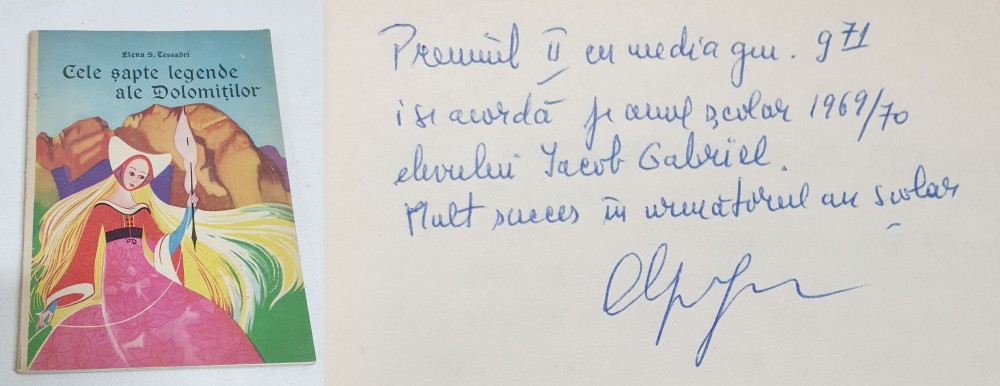 Elena S. Tessadri
Cele șapte legende
ale Dolomiților
Premiul II cu media gen. 9 71
i se acordă pe anul școlar 1969/70
elevului Iacob Gabriel.
Mult succes în următorul an școlar